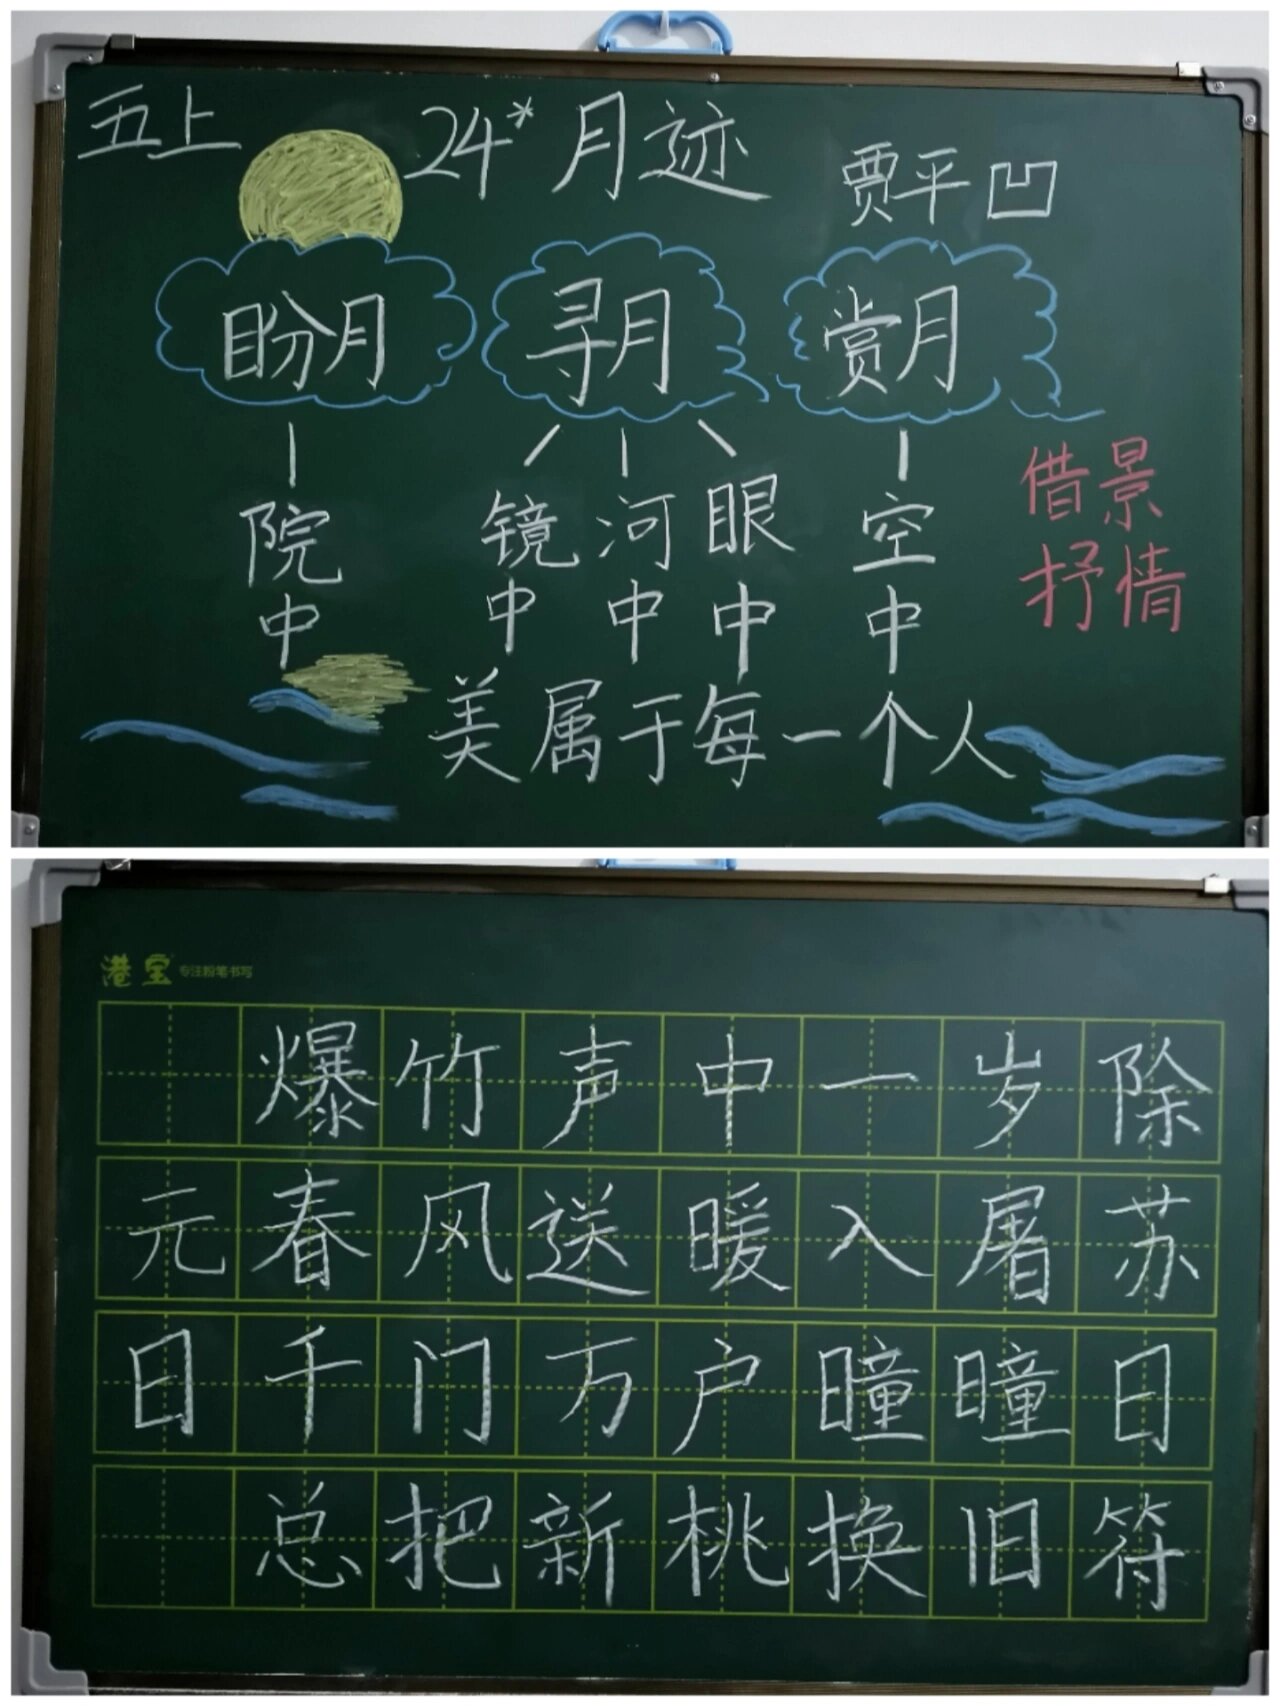 五上
24* 月迹
贾平凹
盼月 寻月 赏月
院中 镜中 河中 眼中 空中
借景
抒情
美属于每一个人
港宝 专注粉笔书写
爆竹声中一岁除
元春风送暖入屠苏
日千门万户曈曈日
总把新桃换旧符